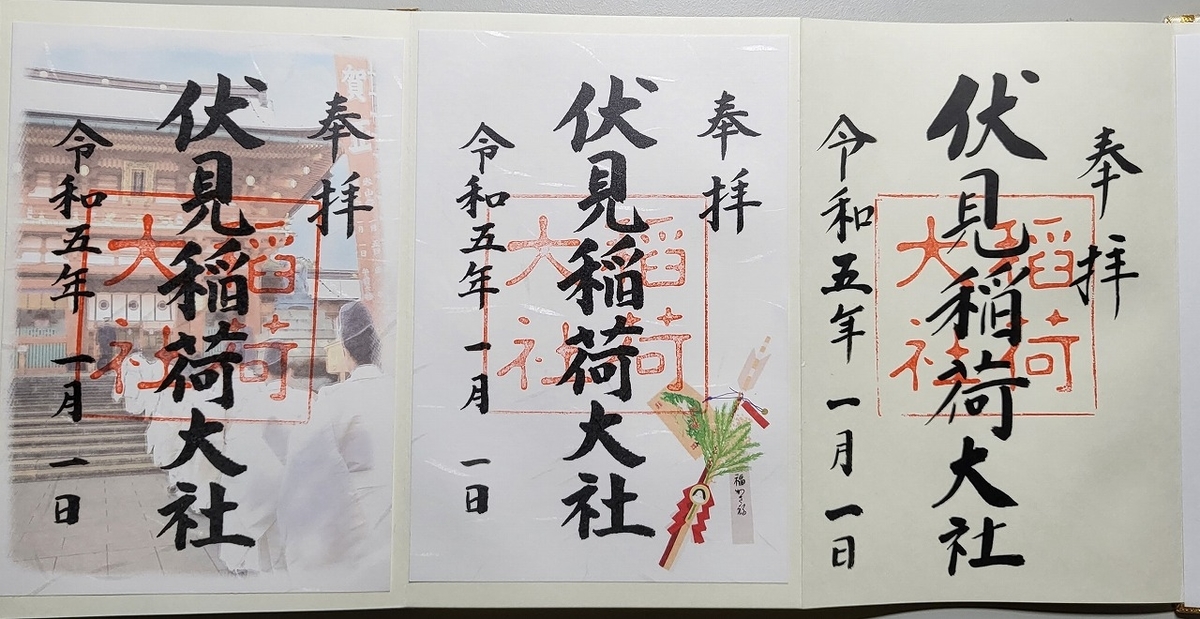 奉拝
伏見稲荷大社
稲荷
大社
令和五年 一月 一日
奉拝
伏見稲荷大社
稲荷
大社
令和五年 一月 一日
奉拝
伏見稲荷大社
稲荷
大社
令和五年 一月 一日
賀